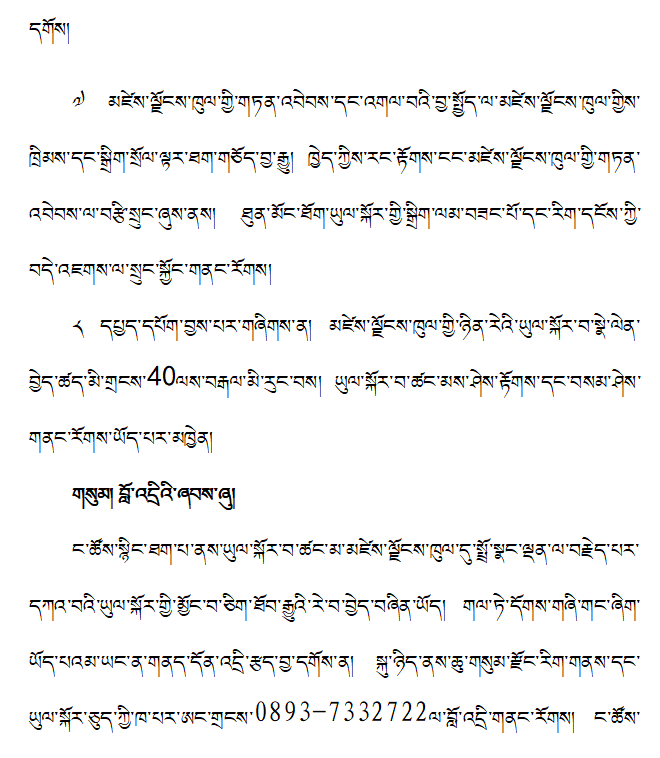 དགོས།
༧) མཛེས་ལྗོངས་ཁུལ་གྱི་གཏན་འབེབས་དང་འགལ་བའི་བྱ་སྤྱོད་ལ་མཛེས་ལྗོངས་ཁུལ་གྱིས་
ཁྲིམས་དང་སྒྲིག་སྲོལ་ལྟར་ཐག་གཅོད་བྱ་རྒྱུ། ཁྱེད་ཀྱིས་རང་རྟོགས་ངང་མཛེས་ལྗོངས་ཁུལ་གྱི་གཏན་
འབེབས་ལ་བརྩི་སྲུང་ཞུས་ནས། ཐུན་མོང་ཐོག་ཡུལ་སྐོར་གྱི་སྒྲིག་ལམ་བཟང་པོ་དང་རིག་དངོས་ཀྱི་
བདེ་འཇགས་ལ་སྲུང་སྐྱོང་གནང་རོགས།
༨ དཔྱད་དཔོག་བྱས་པར་གཞིགས་ན། མཛེས་ལྗོངས་ཁུལ་གྱི་ཉིན་རེའི་ཡུལ་སྐོར་བ་སྣེ་ལེན་
བྱེད་ཚད་མི་གྲངས་40ལས་བརྒལ་མི་རུང་བས། ཡུལ་སྐོར་བ་ཚང་མས་ཤེས་རྟོགས་དང་བསམ་ཤེས་
གནང་རོགས་ཡོད་པར་མཁྱེན།
གསུམ། བློ་འདྲིའི་ཞབས་ཞུ།
ང་ཚོས་སྙིང་ཐག་པ་ནས་ཡུལ་སྐོར་བ་ཚང་མ་མཛེས་ལྗོངས་ཁུལ་དུ་སྤྲོ་སྣང་ལྡན་ལ་བརྗེད་པར་
དཀའ་བའི་ཡུལ་སྐོར་གྱི་མྱོང་བ་ཅིག་ཐོབ་རྒྱུའི་རེ་བ་བྱེད་བཞིན་ཡོད། གལ་ཏེ་དོགས་གཞི་གང་ཞིག་
ཡོད་པའམ་ཡང་ན་གནད་དོན་འདྲི་རྩད་བྱ་དགོས་ན། སྐུ་ཉིད་ནས་ཆུ་གསུམ་རྫོང་རིག་གནས་དང་
ཡུལ་སྐོར་ཅུད་ཀྱི་ཁ་པར་ཨང་གྲངས་0893-7332722ལ་བློ་འདྲི་གནང་རོགས། ང་ཚོས་